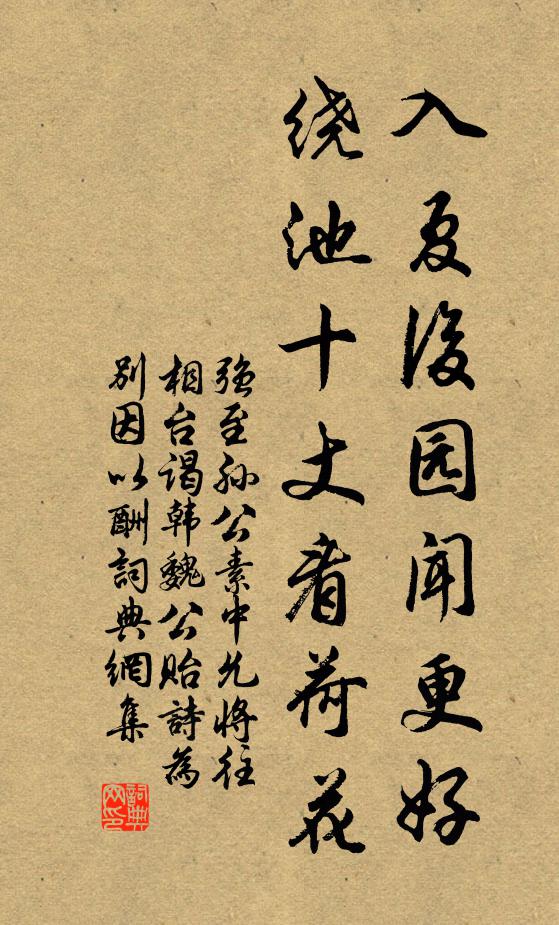 入夏後园闻更好
绕池十丈看荷花
强至孙公素中允将往
相台谒韩魏公贻詩為
别因以酬詞典網集
詞典
网印